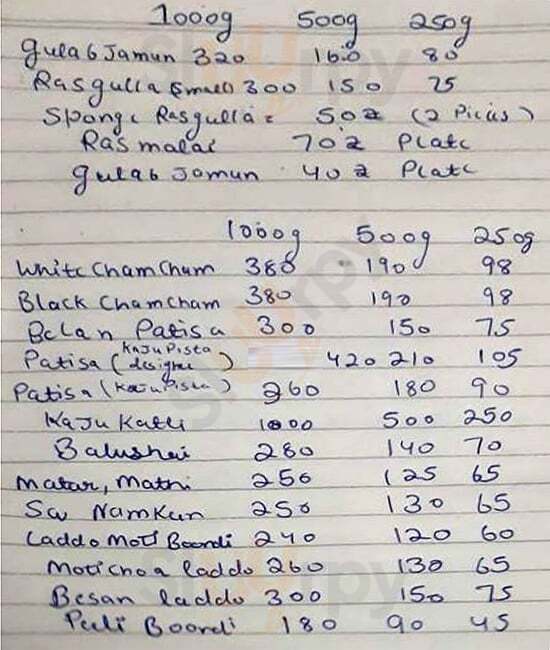 1000g 500g 250g
Gulab Jamun 320 160 80
Rasgulla (small) 300 150 75
Sponge Rasgulla = 50z (2 Picies)
Rasmalai 70z Plate
Gulab Jamun 40z Plate
1000g 500g 250g
White Cham Cham 380 190 98
Black Chamcham 380 190 98
Belan Patisa 300 150 75
Patisa (Kaju Pista designe) 420 210 105
Patisa (Kaju Pista) 260 180 90
Kaju Katli 1000 500 250
Balushai 280 140 70
Matar, Mathi 250 125 65
Sav Namkun 250 130 65
Laddo Moti Boondi 240 120 60
Motichoa laddo 260 130 65
Besan laddo 300 150 75
Pali Boondi 180 90 45